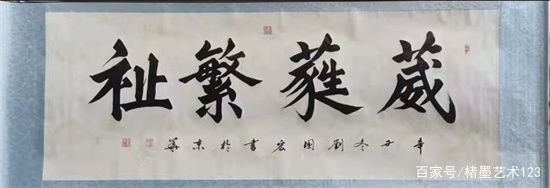 葳蕤繁祉
辛丑冬劉国宏書於京華
百家号/楮墨艺术123